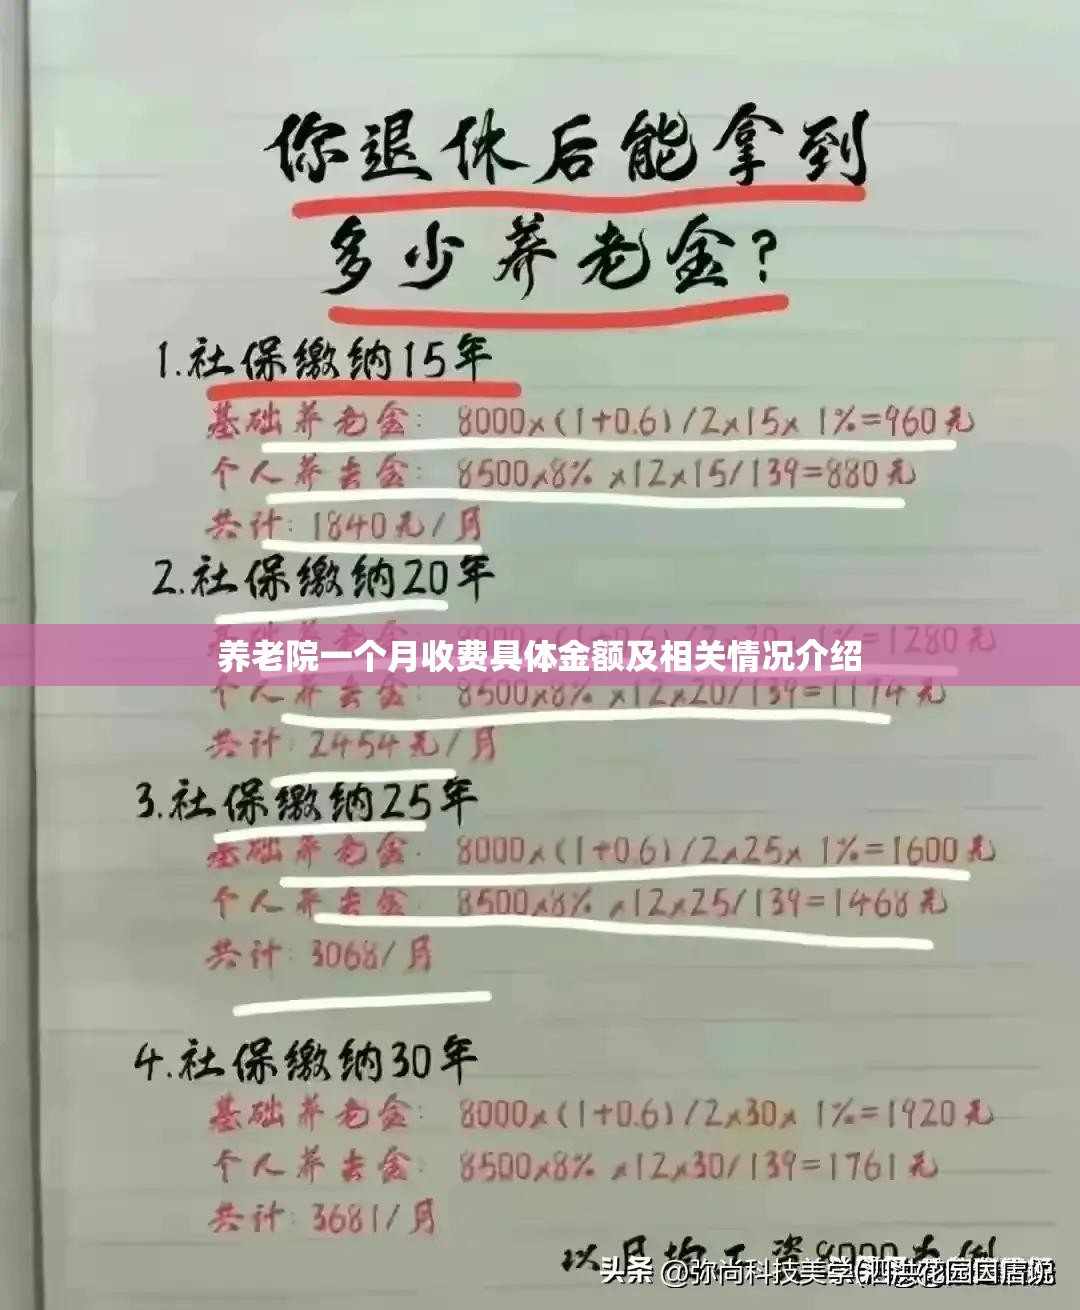 你退休后能拿到
多少养老金?
1.社保缴纳15年
基础养老金: 8000×(1+0.6)/2×15×1%=960元
个人养老金: 8500×8%×12×15/139=880元
共计: 1840元/月
2.社保缴纳20年
1280元
养老院一个月收费具体金额及相关情况介绍
个人养老金: 8500×8%×12×20/139=1174元
共计: 2454元/月
3.社保缴纳25年
基础养老金: 8000×(1+0.6)/2×25×1%=1600元
个人养老金: 8500×8%×12×25/139=1468元
共计: 3068/月
4.社保缴纳30年
基础养老金: 8000×(1+0.6)/2×30×1%=1920元
个人养老金: 8500×8%×12×30/139=1761元
共计: 3681/月
以月均工资8000为例
头条 @弥尚科技美学